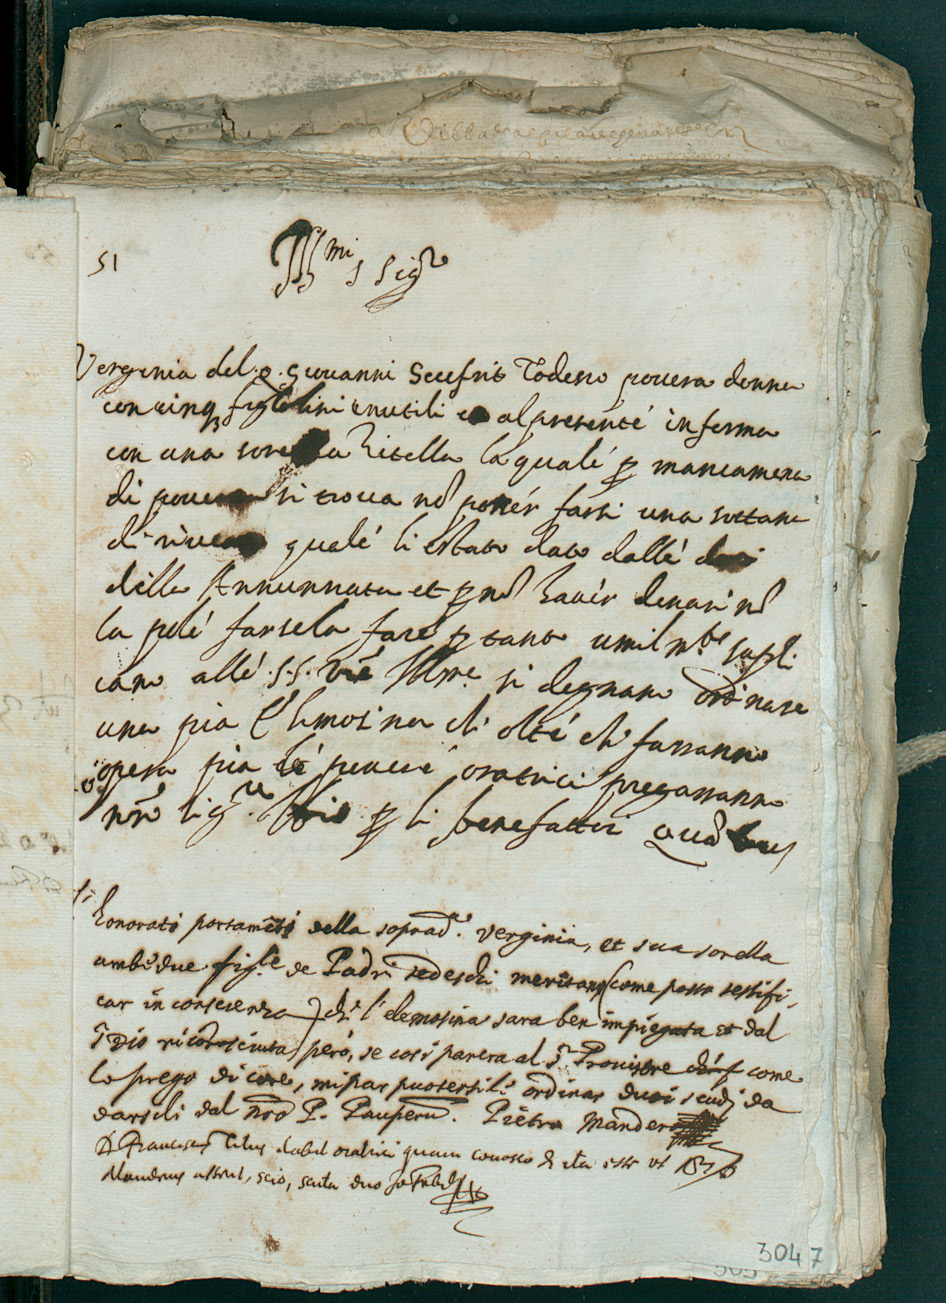 51
Ill.mi SSig.ri
Verginia del q. Giovanni Seufrit Todesco povera donna
con cinq figliolini inutili et al presente inferma
con una sorella Zitella la quale p mancamento
di si trova nõ potér farsi una sottana
di quale li è stato dato dalle
della Annunnata et p nõ havér denari nõ
la pole farsela fare p tanto umilm.te suppli
cano alle S.S. Vre Illme si degnano ordinare
una pia elemosina ch'oltre che farranno
opera pia le povere oratrici pregarranno
nrõ Sig.re Iddio p li benefattori Quã Deus
honorati portamẽti della soprad.a Verginia, et sua sorella
ambedue figle de Padri tedeschi meritano (come posso testifi
car in conscienza) che l'elemosina sara ben impiegata et dal
S.r Dio riconosciuta, però, se cosi parera al S.r Provisore come
lo prego di core, mi par potersili ordinar duoi scudi da
darseli dal nrõ P. Pauperũ. Pietro Mander
D. Franciscus Titus det oratrici quam ita esse ut
Manderus attest, scio, scuta duo
3047